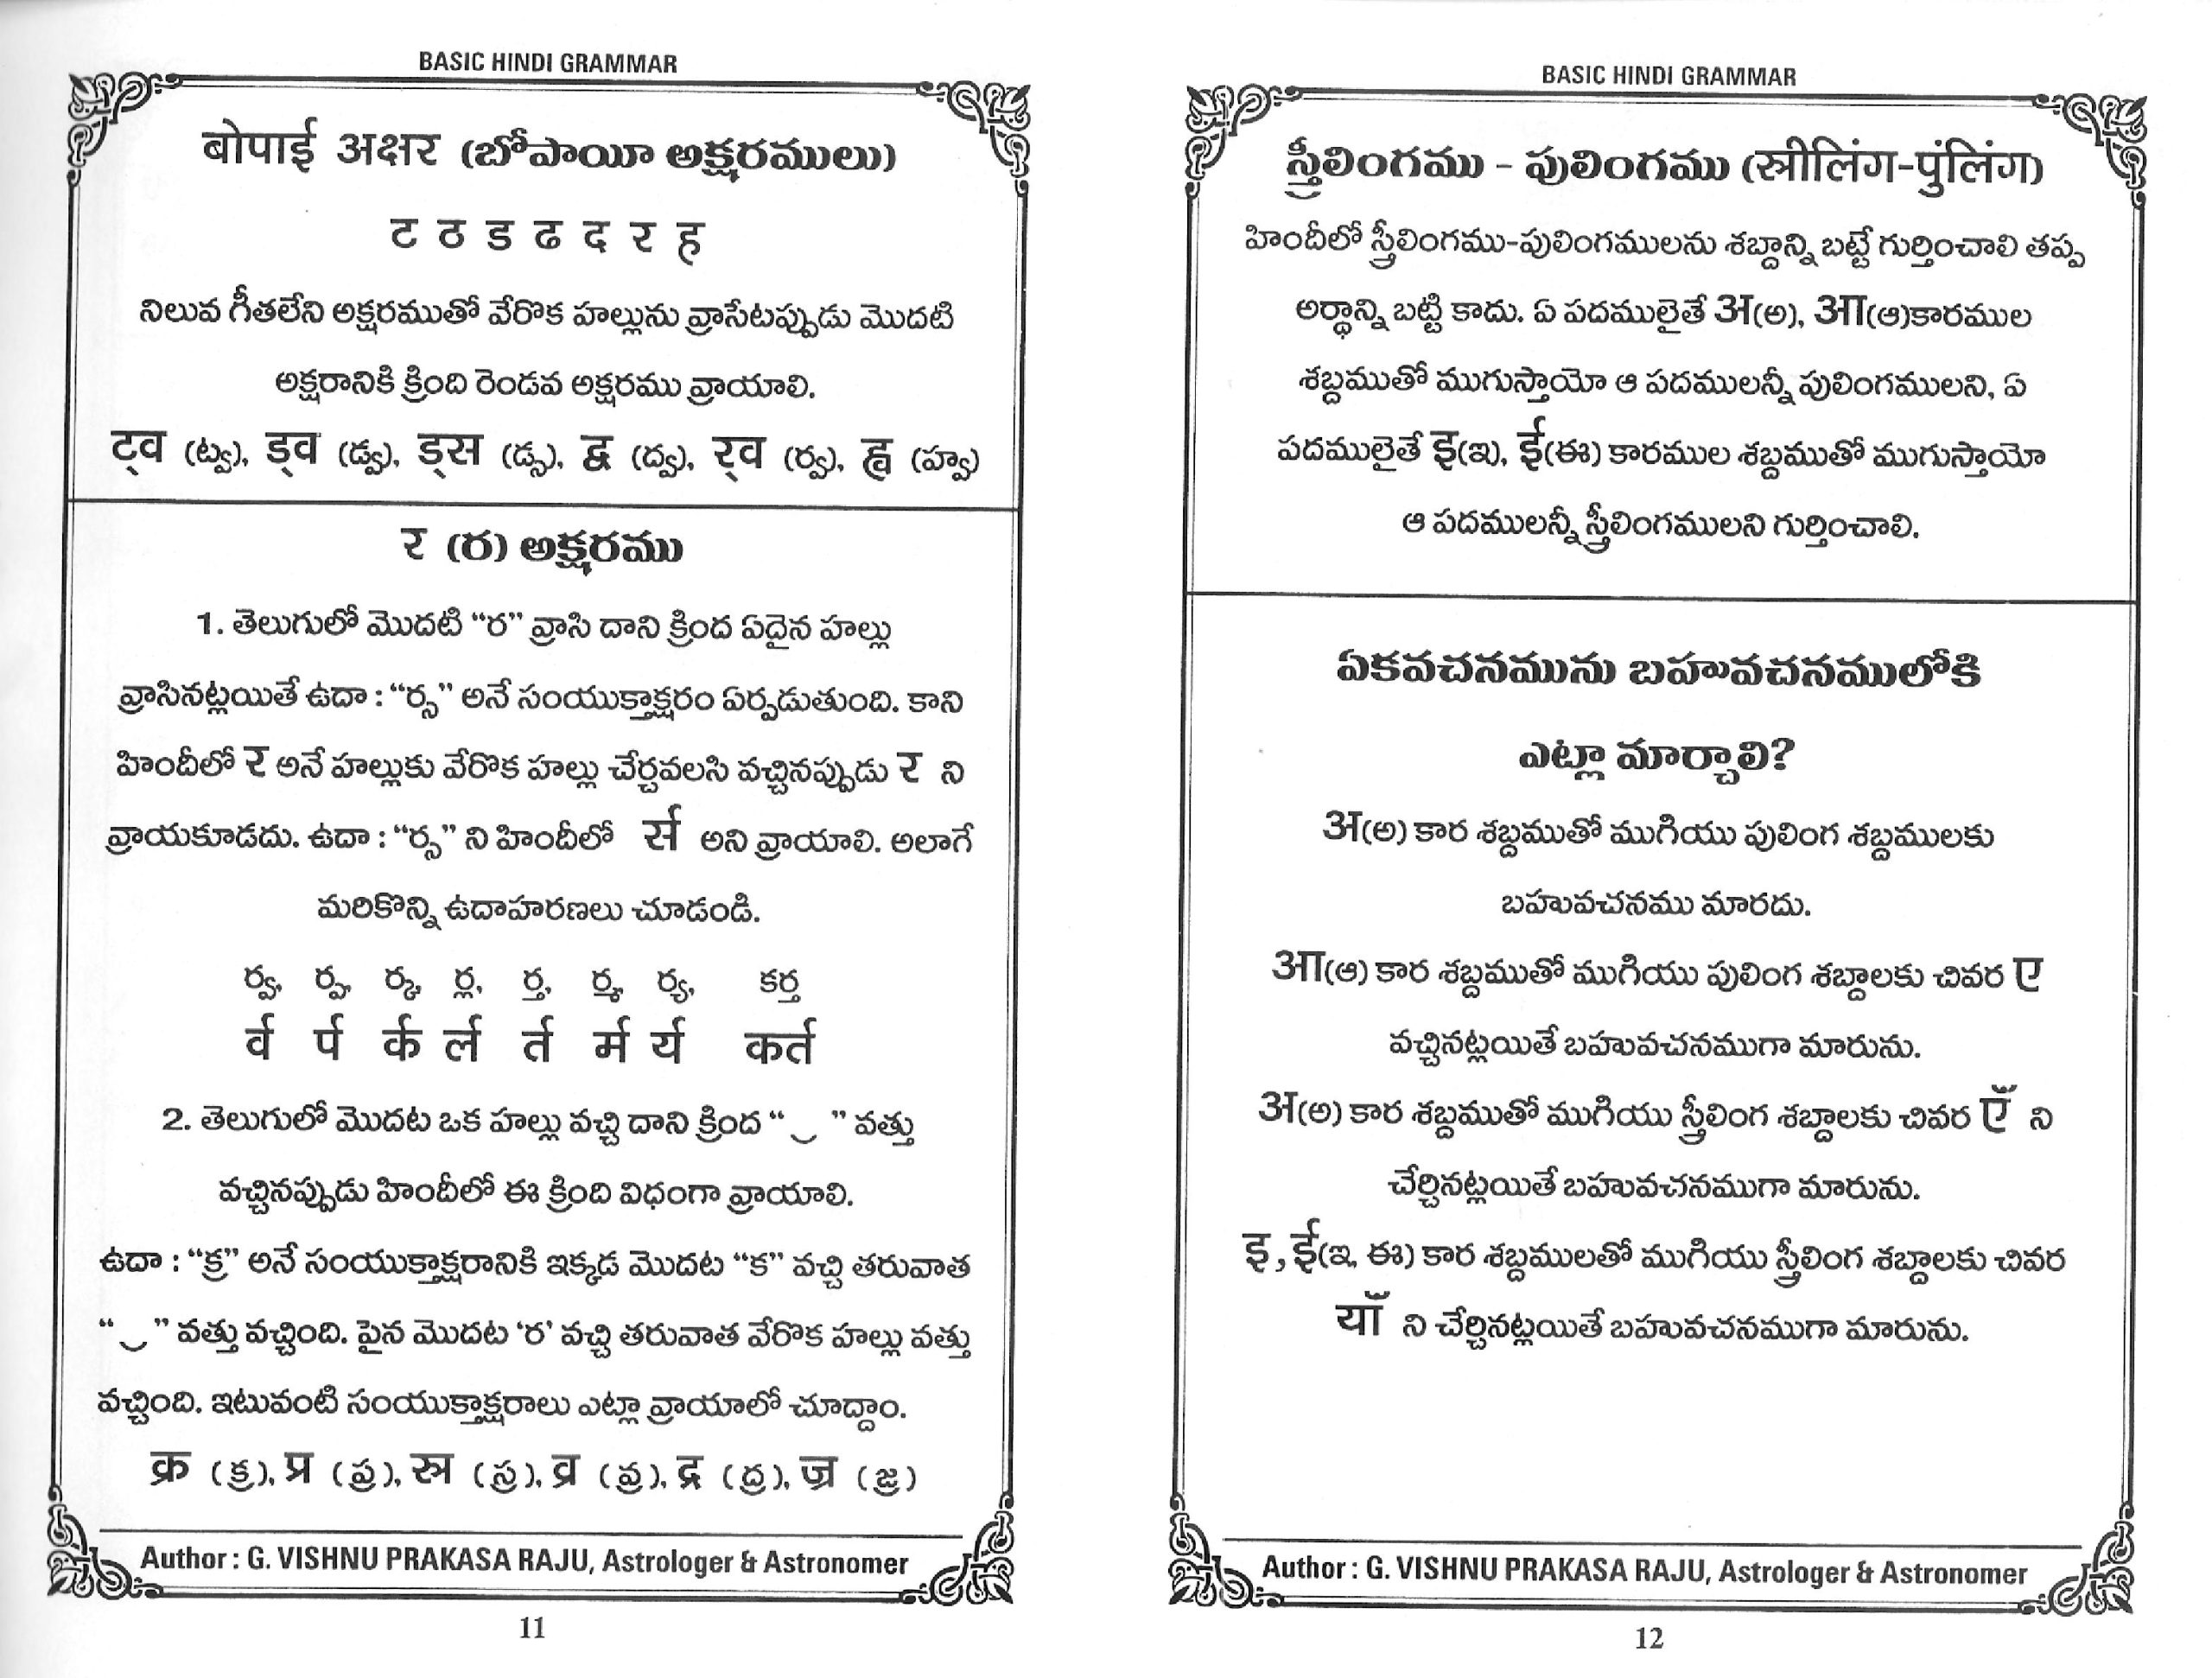 BASIC HINDI GRAMMAR
बोपाई अक्षर (బోపాయీ అక్షరములు)
ट ठ ड ढ द र ह
నిలువ గీతలేని అక్షరముతో వేరొక హల్లును వ్రాసేటప్పుడు మొదటి
అక్షరానికి క్రింది రెండవ అక్షరము వ్రాయాలి.
ट्‌व (ట్వ), ड्‌व (డ్వ), ड्‌स (డ్స), द्व (ద్వ), र्‌व (ర్వ), ह्व (హ్వ)
र (ర) అక్షరము
1. తెలుగులో మొదటి “ర” వ్రాసి దాని క్రింద ఏదైన హల్లు
వ్రాసినట్లయితే ఉదా : “ర్స” అనే సంయుక్తాక్షరం ఏర్పడుతుంది. కాని
హిందీలో र అనే హల్లుకు వేరొక హల్లు చేర్చవలసి వచ్చినప్పుడు र ని
వ్రాయకూడదు. ఉదా : “ర్స” ని హిందీలో र्स అని వ్రాయాలి. అలాగే
మరికొన్ని ఉదాహరణలు చూడండి.
ర్వ, ర్ప, ర్క, ర్ల, ర్త, ర్మ, ర్య, కర్త
र्व र्प र्क र्ल र्त र्म र्य कर्त
2. తెలుగులో మొదట ఒక హల్లు వచ్చి దాని క్రింద “ ్ర ” వత్తు
వచ్చినప్పుడు హిందీలో ఈ క్రింది విధంగా వ్రాయాలి.
ఉదా : “క్ర” అనే సంయుక్తాక్షరానికి ఇక్కడ మొదట “క” వచ్చి తరువాత
“ ్ర ” వత్తు వచ్చింది. పైన మొదట ‘ర’ వచ్చి తరువాత వేరొక హల్లు వత్తు
వచ్చింది. ఇటువంటి సంయుక్తాక్షరాలు ఎట్లా వ్రాయాలో చూద్దాం.
क्र (క్ర), प्र (ప్ర), स्र (స్ర), व्र (వ్ర), द्र (ద్ర), ज्र (జ్ర)
Author : G. VISHNU PRAKASA RAJU, Astrologer & Astronomer
11
BASIC HINDI GRAMMAR
స్త్రీలింగము - పులింగము (स्त्रीलिंग-पुंलिंग)
హిందీలో స్త్రీలింగము-పులింగములను శబ్దాన్ని బట్టే గుర్తించాలి తప్ప
అర్థాన్ని బట్టి కాదు. ఏ పదములైతే अ(అ), आ(ఆ)కారముల
శబ్దముతో ముగుస్తాయో ఆ పదములన్నీ పులింగములని, ఏ
పదములైతే इ(ఇ), ई(ఈ) కారముల శబ్దముతో ముగుస్తాయో
ఆ పదములన్నీ స్త్రీలింగములని గుర్తించాలి.
ఏకవచనమును బహువచనములోకి
ఎట్లా మార్చాలి?
अ(అ) కార శబ్దముతో ముగియు పులింగ శబ్దములకు
బహువచనము మారదు.
आ(ఆ) కార శబ్దముతో ముగియు పులింగ శబ్దాలకు చివర ए
వచ్చినట్లయితే బహువచనముగా మారును.
अ(అ) కార శబ్దముతో ముగియు స్త్రీలింగ శబ్దాలకు చివర एँ ని
చేర్చినట్లయితే బహువచనముగా మారును.
इ, ई(ఇ, ఈ) కార శబ్దములతో ముగియు స్త్రీలింగ శబ్దాలకు చివర
याँ ని చేర్చినట్లయితే బహువచనముగా మారును.
Author : G. VISHNU PRAKASA RAJU, Astrologer & Astronomer
12